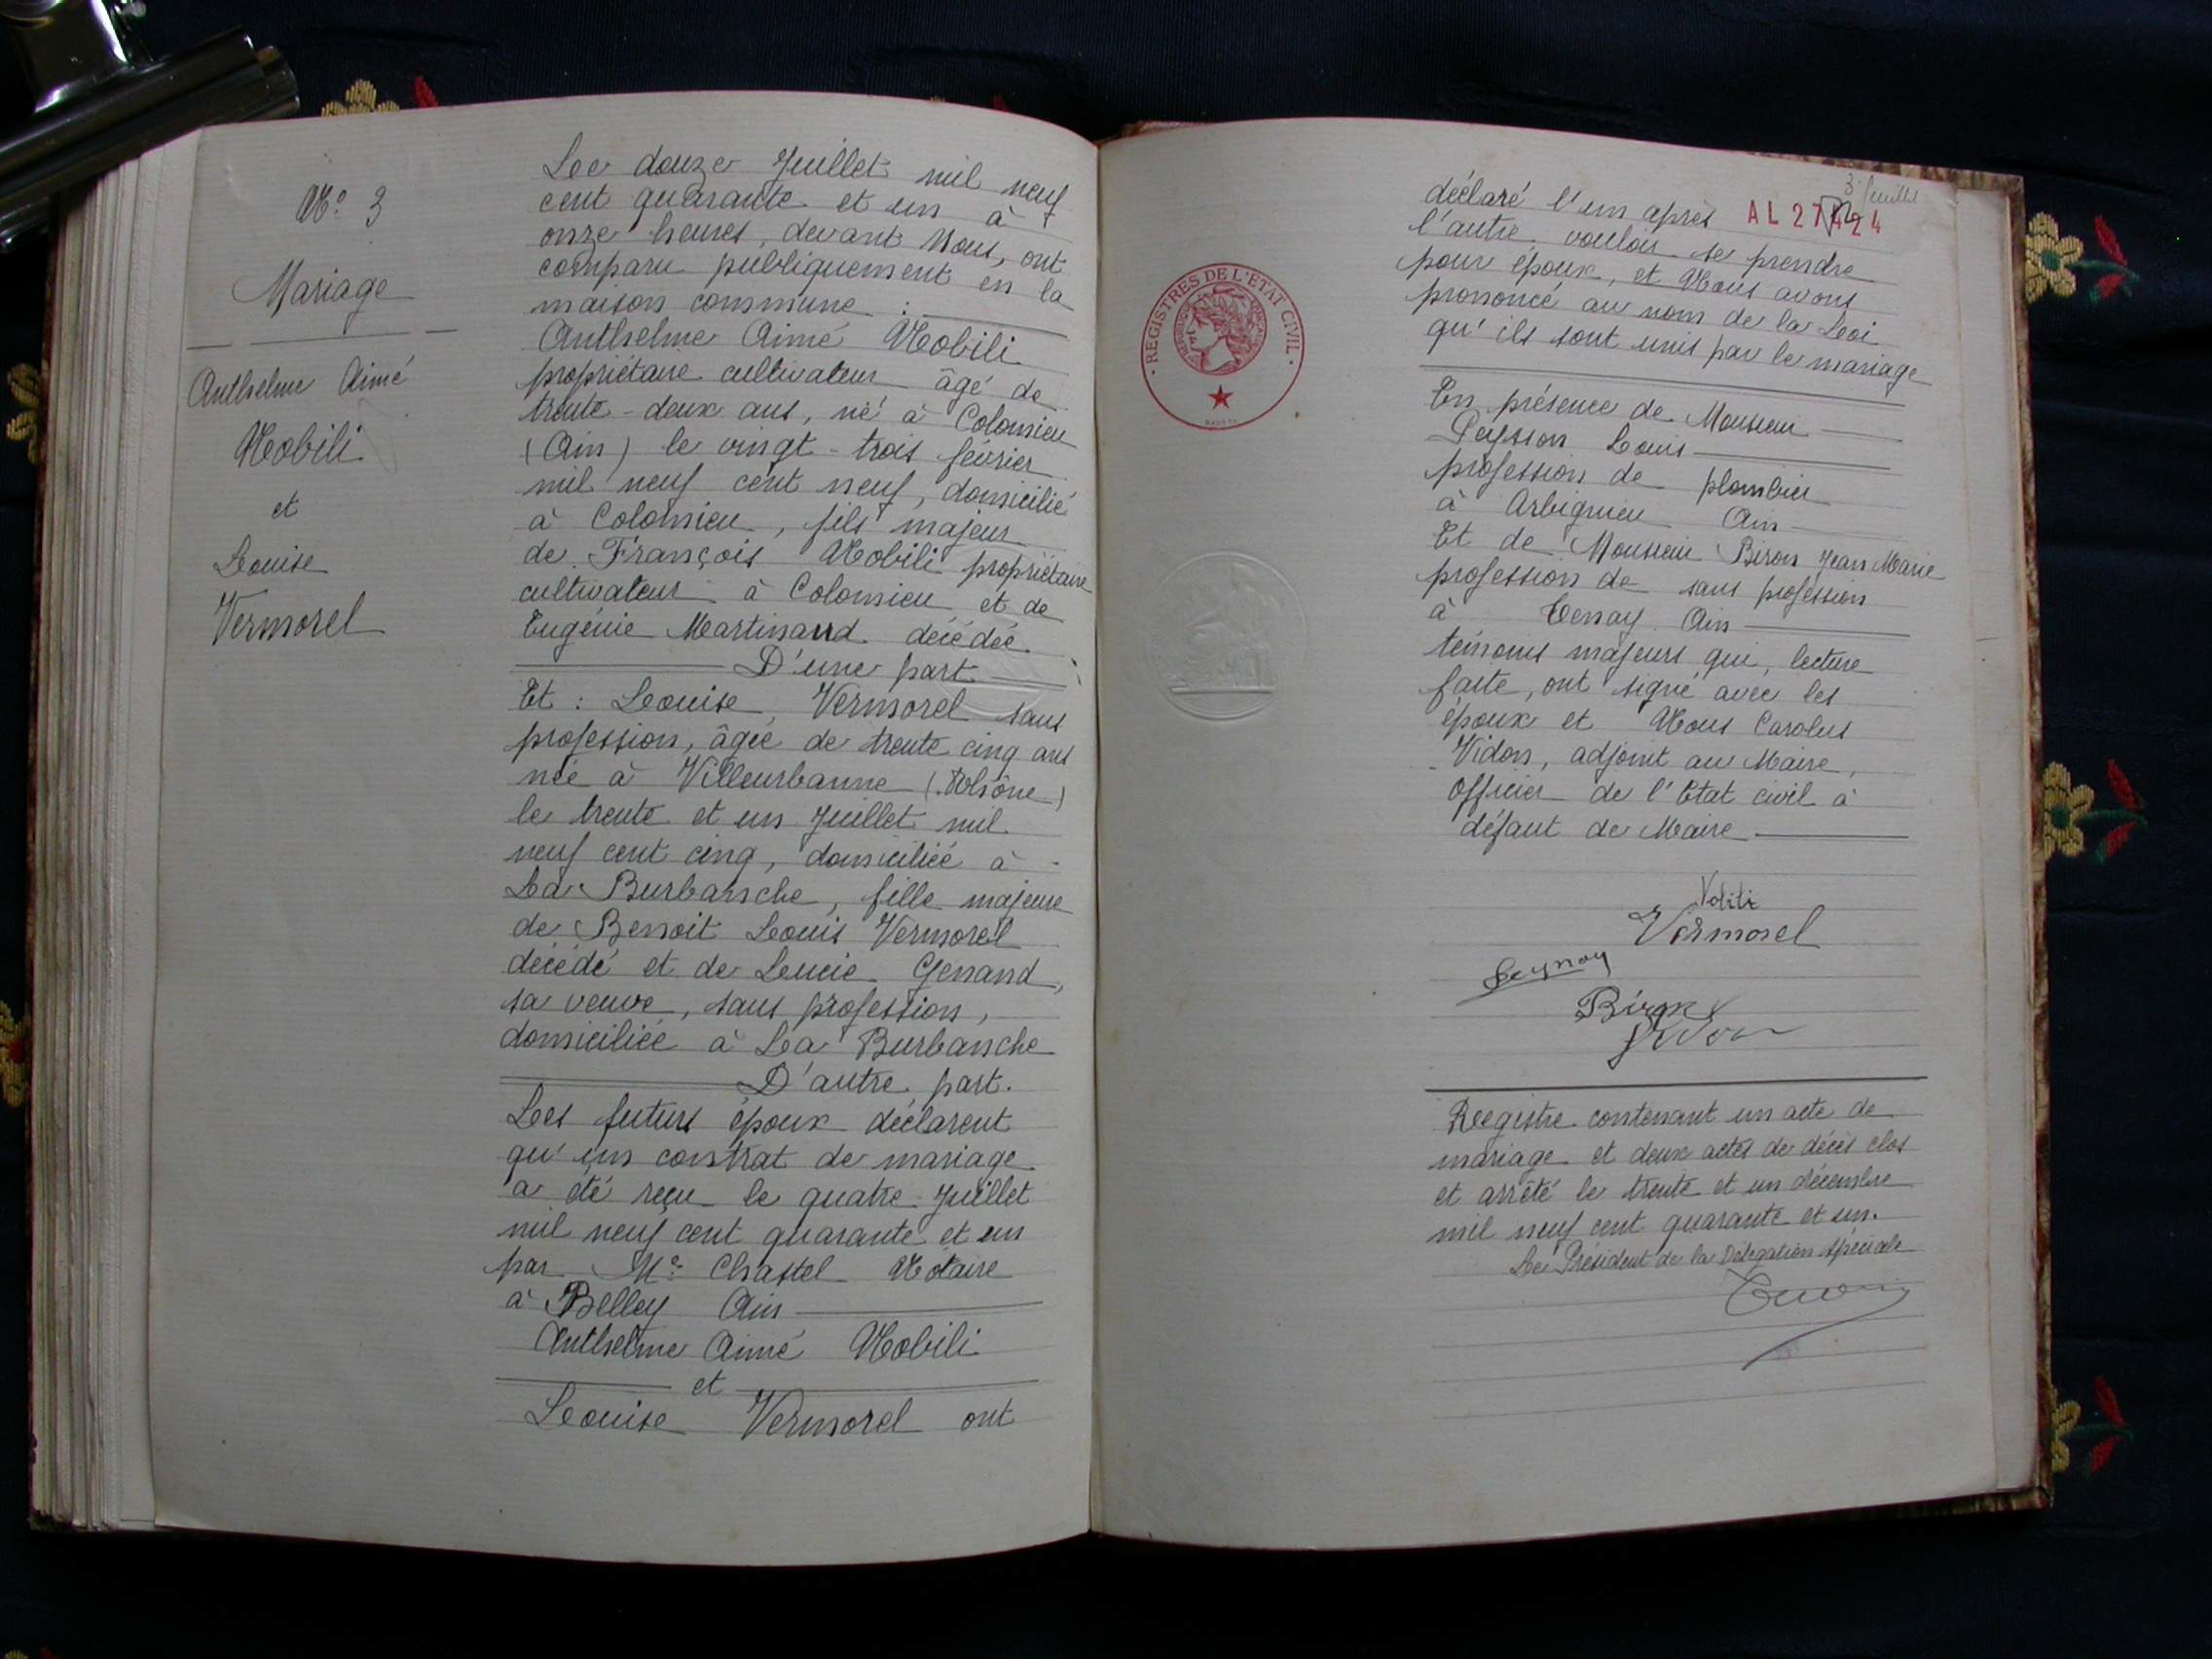 N° 3
Mariage
Anthelme Aimé
Nobili
et
Louise
Vermorel
Le douze Juillet mil neuf
cent quarante et un à
onze heures, devant Nous, ont
comparu publiquement en la
maison commune :
Anthelme Aimé Nobili
propriétaire cultivateur âgé de
trente-deux ans, né à Colomieu
(Ain) le vingt-trois février
mil neuf cent neuf, domicilié
à Colomieu, fils majeur
de François Nobili propriétaire
cultivateur à Colomieu et de
Eugénie Martinand décédée.
D'une part
Et : Louise Vermorel sans
profession, âgée de trente cinq ans
née à Villeurbanne (Rhône)
le trente et un Juillet mil
neuf cent cinq, domiciliée à
La Burbanche, fille majeure
de Benoit Louis Vermorel
décédé et de Lucie Genand,
sa veuve, sans profession,
domiciliée à La Burbanche
D'autre part.
Les futurs époux déclarent
qu'un contrat de mariage
a été reçu le quatre Juillet
mil neuf cent quarante et un
par Me Chastel Notaire
à Belley Ain
Anthelme Aimé Nobili
et
Louise Vermorel ont
3e feuillet
AL 27424
déclaré l'un après
l'autre vouloir se prendre
pour époux, et Nous avons
prononcé au nom de la Loi
qu'ils sont unis par le mariage
En présence de Monsieur
Louis
profession de plombier
à Arbignieu Ain
Et de Monsieur Biron Jean Marie
profession de sans profession
à Tenay Ain
témoins majeurs qui, lecture
faite, ont signé avec les
époux et Nous Carolus
Vidon, adjoint au Maire,
Officier de l'Etat civil à
défaut de Maire
REGISTRES DE L'ETAT CIVIL
Vermorel
Biron
Vidon
Registre contenant un acte de
mariage et deux actes de décès clos
et arrêté le trente et un décembre
mil neuf cent quarante et un.
Le Président de la Délégation Spéciale